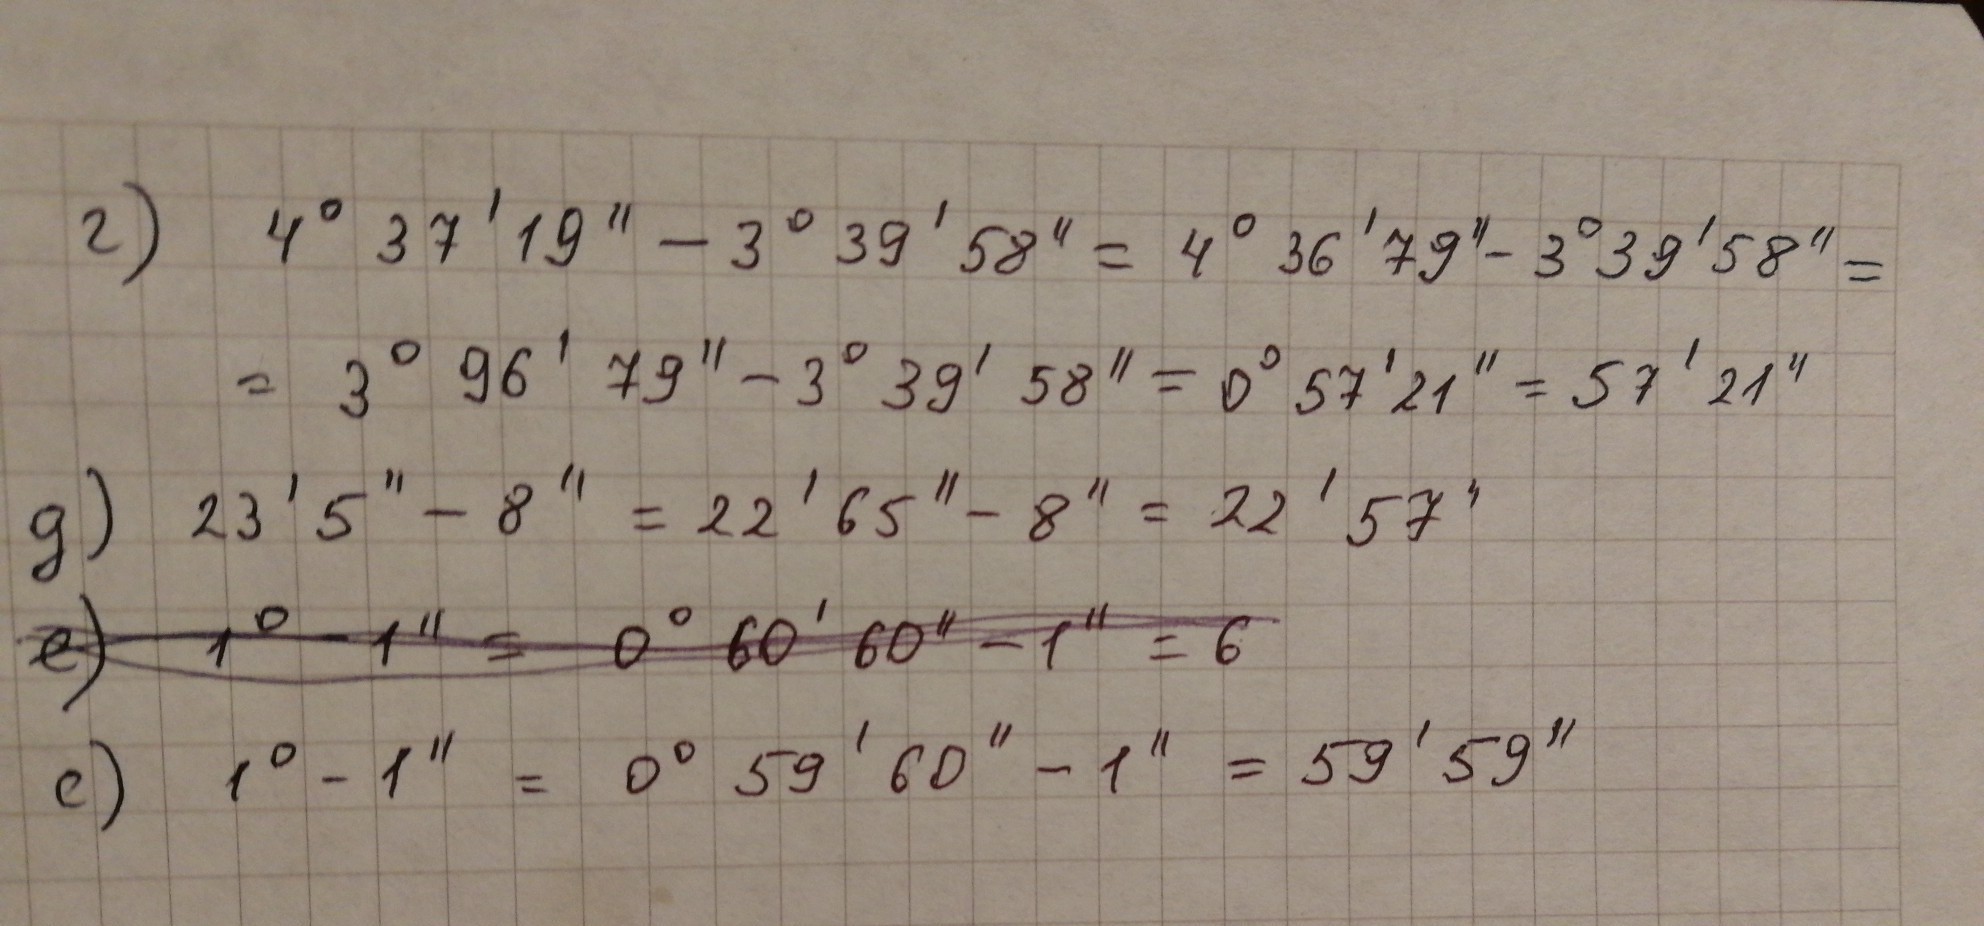 г) 4° 37' 19" − 3° 39' 58" = 4° 36' 79" − 3° 39' 58" =
= 3° 96' 79" − 3° 39' 58" = 0° 57' 21" = 57' 21"
g) 23' 5" − 8" = 22' 65" − 8" = 22' 57"
e) 1° − 1" = 0° 60' 60" − 1" = 6
e) 1° − 1" = 0° 59' 60" − 1" = 59' 59"